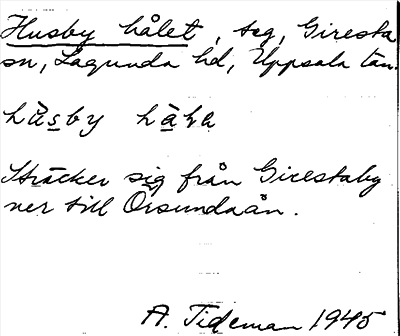 Husby hålet, teg, Giresta
sn, Lagunda hd, Uppsala län.
hu̇s̲by
Sträcker sig från Girestaby
ner till Örsundaån.
A. Tideman 1945